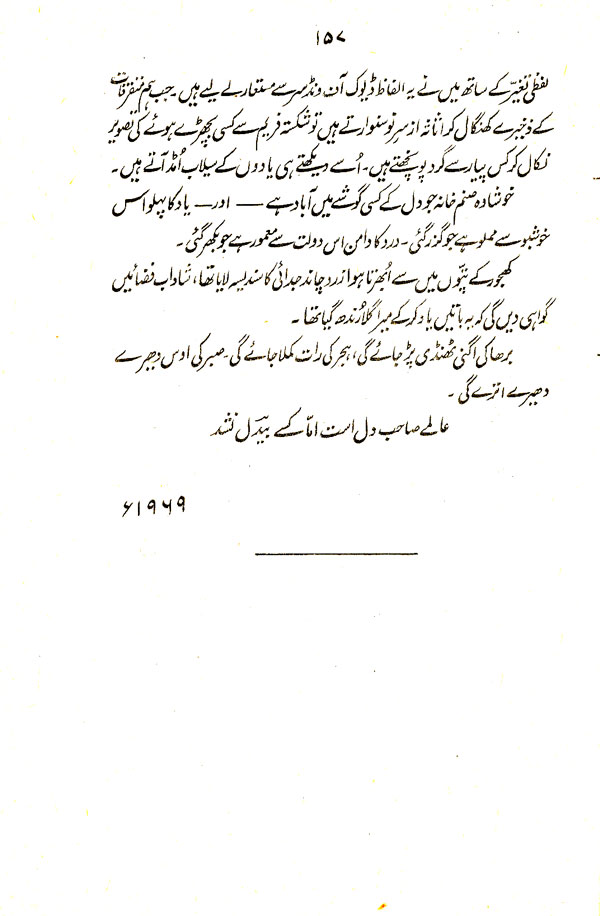 ۱۵۷
لفظی تغیّر کے ساتھ میں نے یہ الفاظ ڈیوک آن ونڈسر سے مستعار لے لیے ہیں۔ جب ہم متفرقات
کے ذخیرے کھنگال کر اثاثہ از سرِ نو سنوارتے ہیں تو شکستہ فریم سے کسی بچھڑے ہوئے کی تصویر
نکال کر کس پیار سے گرد پونچھتے ہیں۔ اُسے دیکھتے ہی یادوں کے سیلاب اُمڈ آتے ہیں۔
خوشا وہ صنم خانہ جو دل کے کسی گوشے میں آباد ہے — اور — یاد کا پہلو اس
خوشبو سے مملو ہے جو گزر گئی۔ درد کا دامن اس دولت سے معمور ہے جو بکھر گئی۔
کھجور کے پتّوں میں سے اُبھرتا ہوا زرد چاند جدائی کا سندیسہ لایا تھا، شاداب فضائیں
گواہی دیں گی کہ یہ باتیں یاد کر کے میرا گلا رُندھ گیا تھا۔
برھا کی اگنی ٹھنڈی پڑ جائے گی، ہجر کی رات کملا جائے گی۔ صبر کی اوس دھیرے
دھیرے اترے گی۔
عالمے صاحب دل است امّا کسے بیدل نشد
۱۹۶۹ء